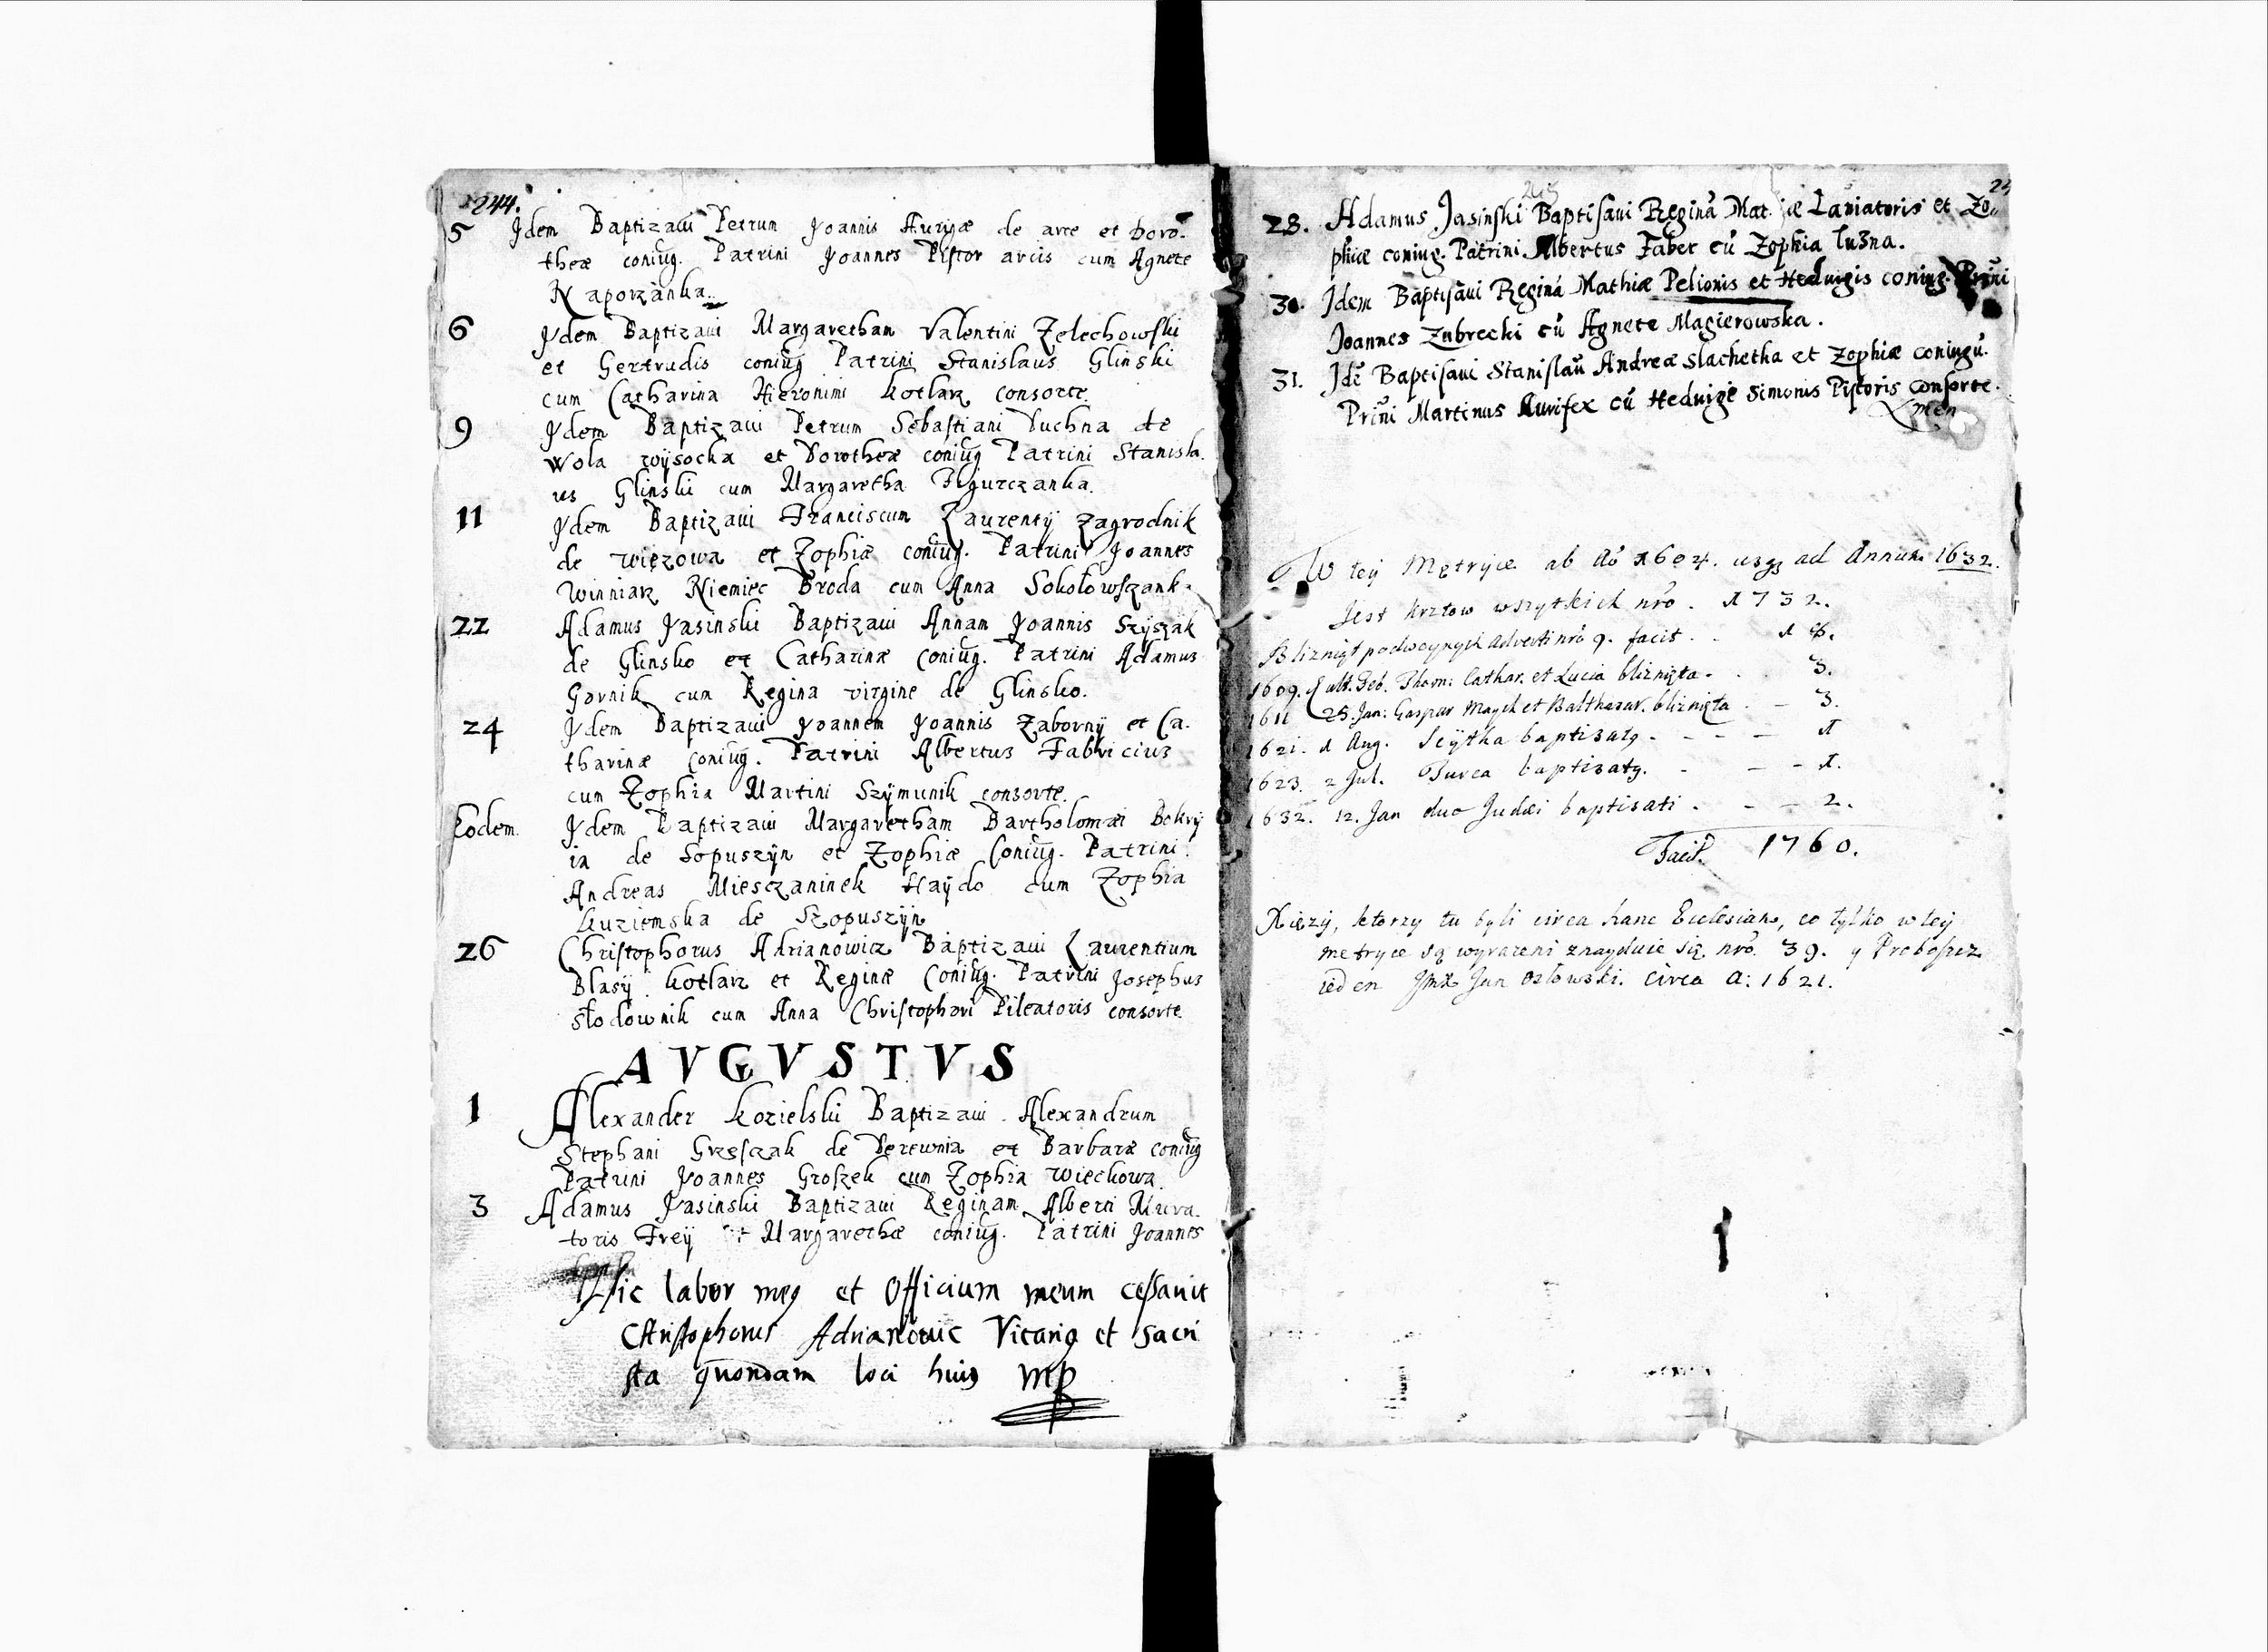 244.
5 Idem Baptizaui Petrum Joannis Aurigæ de arce et Doro-
theæ coniug. Patrini Joannes Pistor arcis cum Agnete
Raporzanka.
6 Idem Baptizaui Margaretham Valentini Zelechowski
et Gertrudis coniug Patrini Stanislaus Glinski
cum Catharina Hieronimi kotlarz consorte.
9 Idem Baptizaui Petrum Sebastiani Puchna de
Wola wysocka et Dorotheæ coniug Patrini Stanisla-
us Glinski cum Margaretha Figurczanka.
11 Idem Baptizaui Franciscum Laurentij Zagrodnik
de Więzowa et Zophiæ coniug. Patrini Joannes
Winniarz Niemiec Broda cum Anna Sokołowszank-
22 Adamus Jasinski Baptizaui Annam Joannis Szyszak
de Glinsko et Catharinæ coniug. Patrini Adamus
Gornik cum Regina virgine de Glinsko.
24 Idem Baptizaui Joannem Joannis Zaborny et Ca-
tharinæ coniug. Patrini Albertus Fabricius
cum Zophia Martini Szymunik consorte.
Eodem. Idem Baptizaui Margaretham Bartholomæi Bokry
ia de Sopuszyn et Zophiæ Coniug. Patrini
Andreas Miesczaninek Haydo cum Zophia
kuziemska de Szopuszyn
26 Christophorus Adrianowicz Baptizaui Laurentium
Blasij kotlarz et Reginæ Coniug. Patrini Josephus
Słodownik cum Anna Christophori Pileatoris consorte.
AVGVSTVS
1 Alexander kozielski Baptizaui Alexandrum
Stephani Grzesczak de Derewnia et Barbaræ coniug
Patrini Joannes Groszek cum Zophia Wiechowa.
3 Adamus Jasinski Baptizaui Reginam Alberti Mura-
toris Frey et Margarethæ coniug. Patrini Joannes
Hic labor meq et Officium meum cessauit
Christophorus Adrianouic Vicariq et Sacri
sta quondam loci huiq mp
28. Adamus Jasinski Baptisaui Reginā Mat iæ Laniatoris et Zo-
phiæ coniug. Patrini Albertus Faber cū Zophia luzna.
30. Idem Baptisaui Reginā Mathiæ Pelionis et Hedvigis coniug. Prīni
Joannes Zubrecki cū Agnete Magierowska.
31. Idē Baptisaui Stanislaū Andreæ slachetka et Zophiæ coniugū.
Prīni Martinus Aurifex cū Hedvige Simonis Pistoris consorte.
Amen
W tey Metryce ab Aō 1604. usqz ad Annum 1632.
Jest krztow wszytkich nrō. 1732.
Blizniąt podwoynych adverti nrō 9. facit. 18.
1609. ult. Feb. Thom: Cathar. et Lucia bliznięta. 3.
1611 25. Jan: Gaspar Maych et Balthasar. bliznięta 3.
1621. 1 Aug. Scytha baptisatq. 1
1623. 2 Jul. Turca baptisatq. 1.
1632. 12. Jan duo Judæi baptisati. 2.
Facit. 1760.
Xięzy, ktorzy tu byli circa hanc Ecclesiam, co tylko w tey
metryce są wyrazeni znayduie się nrō. 39. y Proboszcz
ieden Jmx Jan Ozłowski. circa A: 1621.